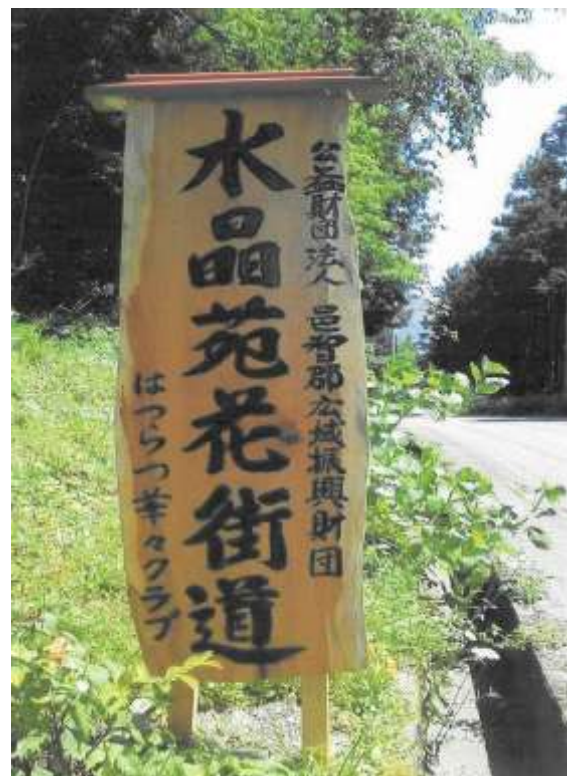 公益財団法人 邑智郡広域振興財団
水晶苑花街道
はつらつ華々クラブ